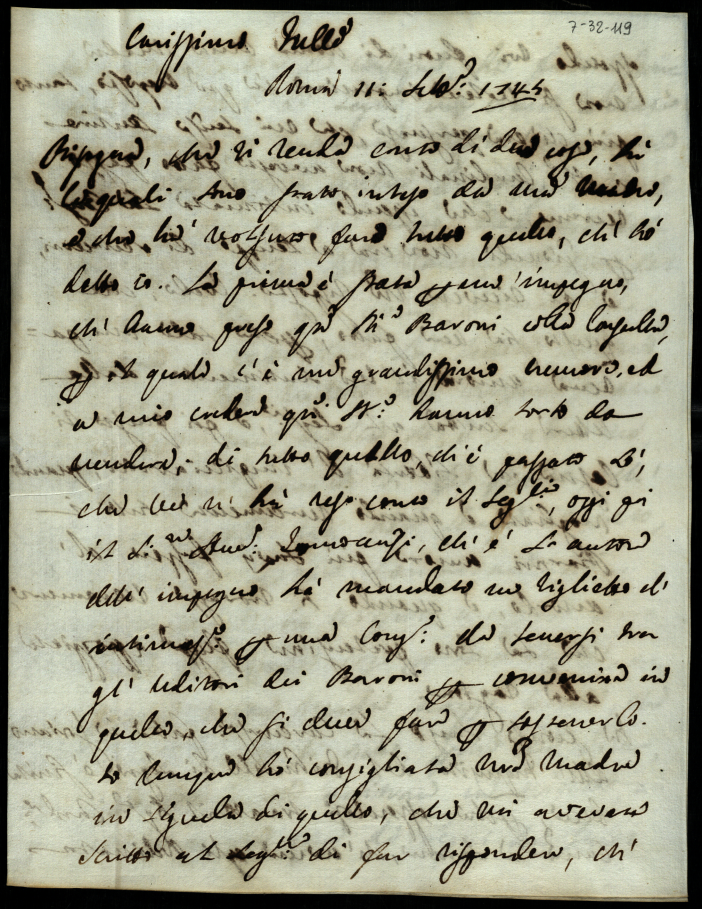 7-32-119
Carissimo Fratello
Roma 11: Feb.º 1745
Bisogna, che vi renda conto di due cose, le
quali sono stato inteso da mia Madre,
e che hà voluto fare tutto quello, ch' hò
detto io. La prima è stata per un' impegno,
ch' hanno preso qti SS.ri Baroni colla Consulta,
per il quale c'è un grandissimo rumore, ed
a mio credere qti SS.ri hanno torto da
vendere; di tutto quello, ch'è passato
che ve n' hà reso conto il, oggi poi
il Innocenzi, ch' è L'autore
dell' impegno hà mandato un biglietto d'
per una Cong.e da tenersi tra
gl' Uditori dei Baroni per convenire in
quello, che si deve fare per sostenerlo.
Io dunque hò consigliata nra Madre
in sequela di quello, che mi avevate
scritto al di far rispondere, ch'